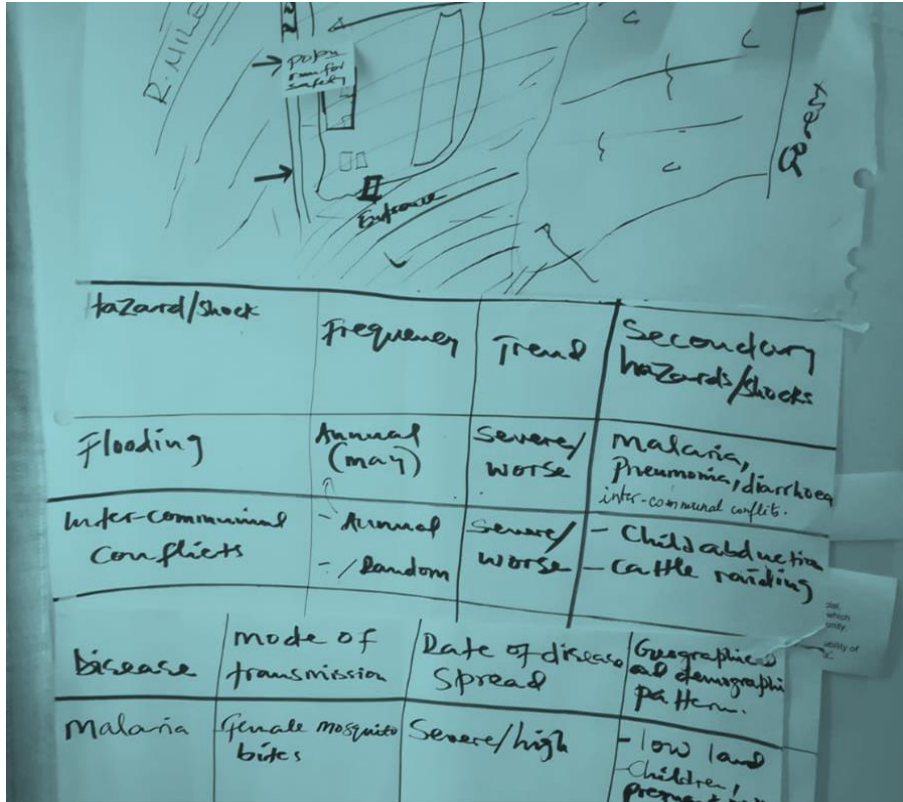 R. MILE
popn
run for
safety
Entrance
Hazard/Shock
Frequency
Trend
Secondary
hazards/shocks
Flooding
Annual
(may)
Severe/
worse
malaria,
Pneumonia, diarrhoea
inter-communal conflits.
Inter-communal
Conflicts
- Annual
- / Random
Severe/
worse
- Child abduction
- cattle raiding
Disease
mode of
transmission
Rate of disease
Spread
Geographical
and demographic
pattern.
Malaria
Female mosquito
bites
Severe/high
- low land
- Children,
which